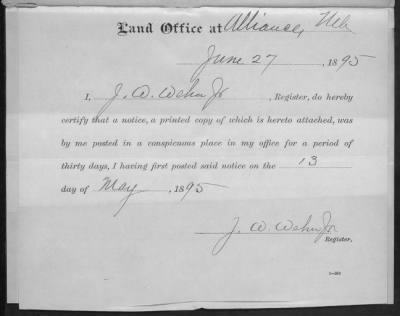 Land Office at Alliance, Neb
June 27, 1895
I, J. W. Wehn Jr, Register, do hereby
certify that a notice, a printed copy of which is hereto attached, was
by me posted in a conspicuous place in my office for a period of
thirty days, I having first posted said notice on the 13
day of May, 1895
J. W. Wehn Jr.
Register.